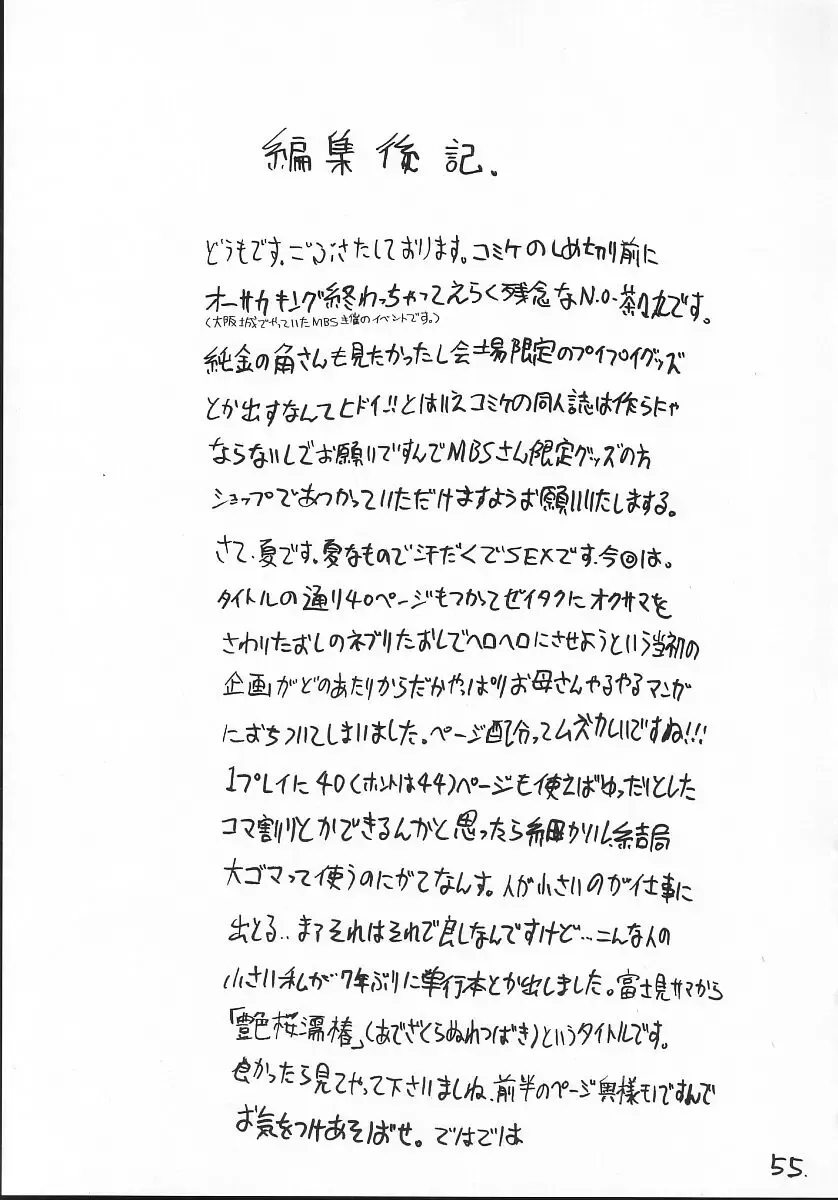 編集後記.
どうもです、ごぶさたしております。コミケのしめ切り前に
オーサカキング終わっちゃってえらく残念なN.O-茶々丸です。
(大阪城でやっていたMBS主催のイベントです。)
純金の角さんも見たかったし会場限定のプイプイグッズ
とか出すなんてヒドイ!!とはいえコミケの同人誌は作らにゃ
ならないしでお願いですんでMBSさん限定グッズの方
ショップであつかっていただけますようお願いいたしまする。
さて、夏です、夏なもので汗だくでSEXです、今回は。
タイトルの通り40ページもつかってゼイタクにオクサマを
さわりたおしのネブりたおしでヘロヘロにさせようという当初の
企画がどのあたりからだかやっぱりお母さんやるやるマンガ
におちついてしまいました。ページ配分ってムズカしいですね!!!
1プレイに40(ホントは44)ページも使えばゆったりとした
コマ割りとかできるんかと思ったら細かいし、結局
大ゴマって使うのにがてなんす。人が小さいのが仕事に
出とる..まァそれはそれで良しなんですけど…こんな人の
小さい私が7年ぶりに単行本とか出しました。富士見サマから
「艶桜濡椿」(あでざくらぬれつばき)というタイトルです。
良かったら見てやって下さいましね、前半のページ奥様モノですんで
お気をつけあそばせ。ではでは
55.